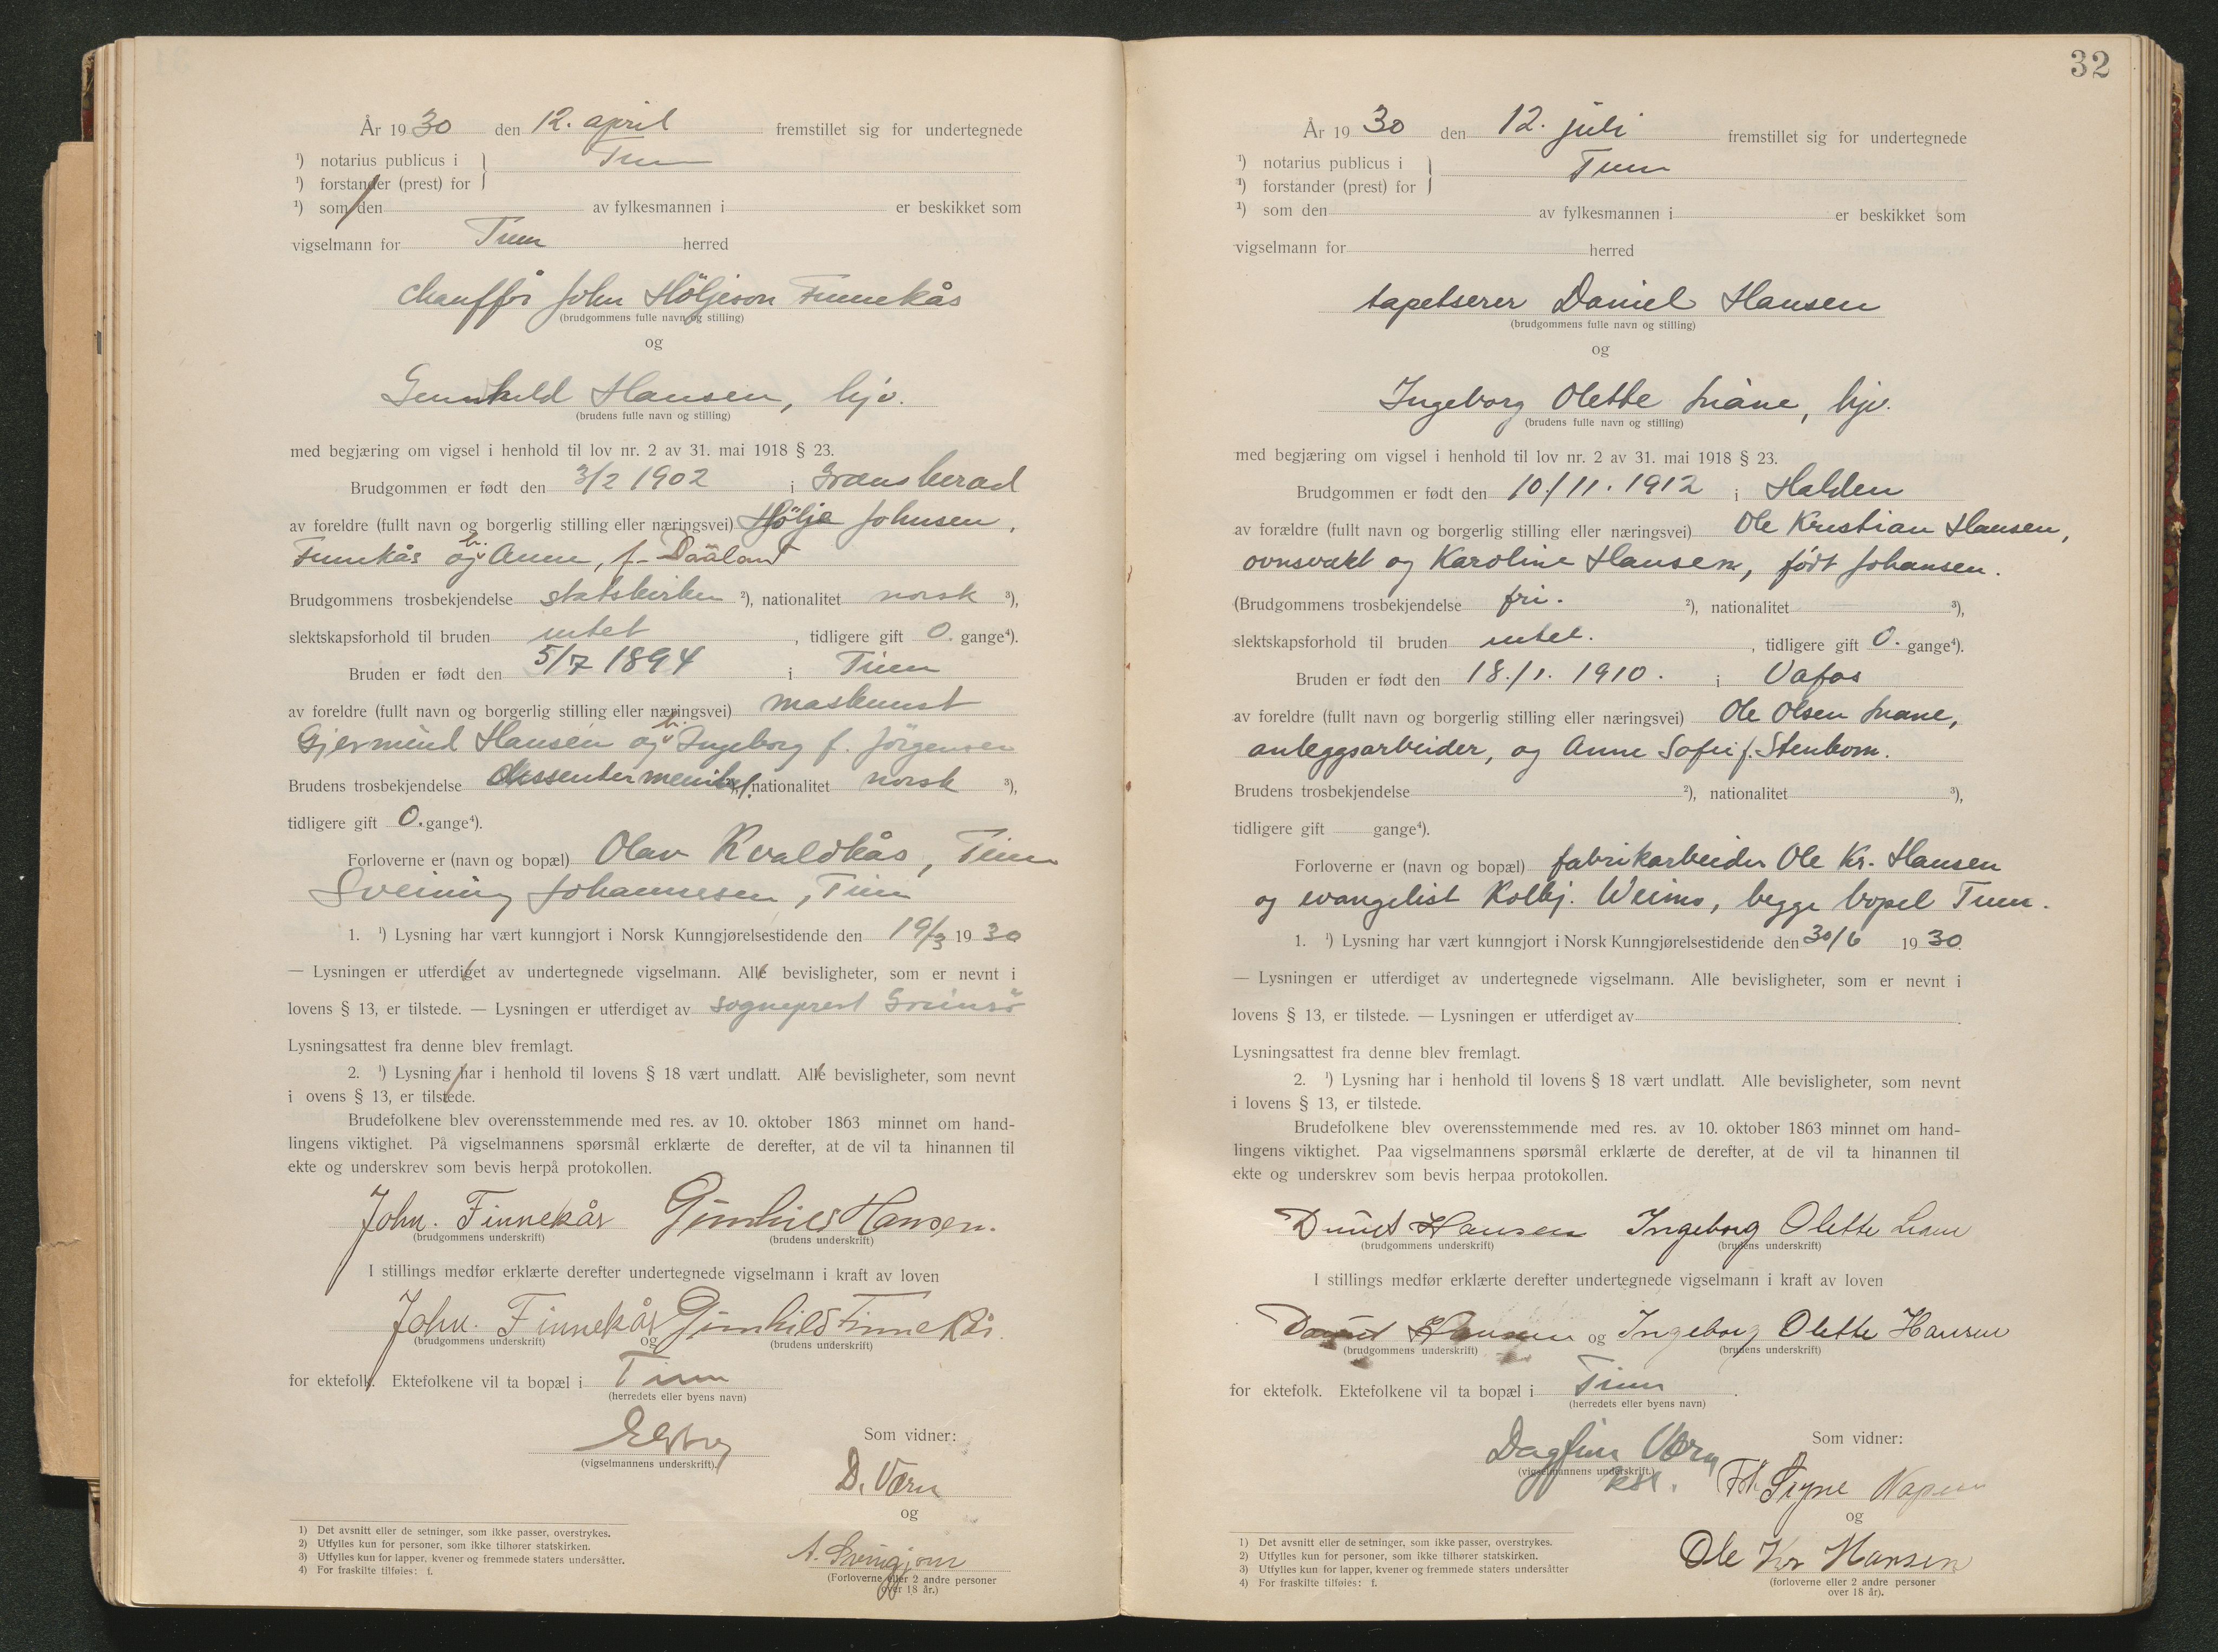 År 1930 den 12. april fremstillet sig for undertegnede
¹) notarius publicus i } Tinn
¹) forstander (prest) for
¹) som den av fylkesmannen i er beskikket som
vigselmann for Tinn herred
chauffør John Höljeson Finnekås
(brudgommens fulle navn og stilling)
og
Gunhild Hansen, hjv.
(brudens fulle navn og stilling)
med begjæring om vigsel i henhold til lov nr. 2 av 31. mai 1918 § 23.
Brudgommen er født den 3/2 1902 i Gransherad
av foreldre (fullt navn og borgerlig stilling eller næringsvei) Hölje Johnsen,
Finnekås og h. Anne, f. Daaland
Brudgommens trosbekjendelse statskirken ²), nationalitet norsk ³),
slektskapsforhold til bruden intet, tidligere gift 0. gange⁴).
Bruden er født den 5/7 1894 i Tinn
av foreldre (fullt navn og borgerlig stilling eller næringsvei) maskinist
Gjermund Hansen og h. Ingeborg f. Jörgensen
Brudens trosbekjendelse dissentermenih. ²), nationalitet norsk ³),
tidligere gift 0. gange⁴).
Forloverne er (navn og bopæl) Olav Kvaldkås, Tinn
Sveining Johannesen, Tinn
1. ¹) Lysning har vært kunngjort i Norsk Kunngjørelsestidende den 19/3 1930
— Lysningen er utferdiget av undertegnede vigselmann. Alle bevisligheter, som er nevnt i
lovens § 13, er tilstede. — Lysningen er utferdiget av sogneprest
Lysningsattest fra denne blev fremlagt.
2. ¹) Lysning har i henhold til lovens § 18 vært undlatt. Alle bevisligheter, som nevnt
i ovens § 13, er tilstede.
Brudefolkene blev overensstemmende med res. av 10. oktober 1863 minnet om hand-
lingens viktighet. På vigselmannens spørsmål erklærte de derefter, at de vil ta hinannen til
ekte og underskrev som bevis herpå protokollen.
John. Finnekås Gunhild Hansen.
(brudgommens underskrift) (brudens underskrift)
I stillings medfør erklærte derefter undertegnede vigselmann i kraft av loven
John. Finnekås og Gunhild Finnekås.
(brudgommens underskrift) (brudens underskrift)
for ektefolk. Ektefolkene vil ta bopæl i Tinn
(herredets eller byens navn)
Som vidner:
(vigselmannens underskrift).
D. Værn
og
A. Sveingjom
(Forloverne eller 2 andre personer
over 18 år.)
1) Det avsnitt eller de setninger, som ikke passer, overstrykes.
2) Utfylles kun for personer, som ikke tilhører statskirken.
3) Utfylles kun for lapper, kvener og fremmede staters undersåtter.
4) For fraskilte tilføies: f.
32
År 1930 den 12. juli fremstillet sig for undertegnede
¹) notarius publicus i } Tinn
¹) forstander (prest) for
¹) som den av fylkesmannen i er beskikket som
vigselmann for herred
tapetserer Daniel Hansen
(brudgommens fulle navn og stilling)
og
Ingeborg Olette Liane, hjv.
(brudens fulle navn og stilling)
med begjæring om vigsel i henhold til lov nr. 2 av 31. mai 1918 § 23.
Brudgommen er født den 10./11. 1912 i Halden
av forældre (fullt navn og borgerlig stilling eller næringsvei) Ole Kristian Hansen,
ovnsvakt og Karoline Hansen, født Johansen.
(Brudgommens trosbekjendelse fri. ²), nationalitet ³),
slektskapsforhold til bruden intet., tidligere gift 0. gange⁴).
Bruden er født den 18./1. 1910. i Vafos
av foreldre (fullt navn og borgerlig stilling eller næringsvei) Ole Olsen Liane,
anleggsarbeider, og Anne Sofie f. Stenkom.
Brudens trosbekjendelse ²), nationalitet ³),
tidligere gift gange⁴).
Forloverne er (navn og bopæl) fabrikarbeider Ole Kr. Hansen
og evangelist Kolbj. Weimo, begge bopel Tinn.
1. ¹) Lysning har vært kunngjort i Norsk Kunngjørelsestidende den 30/6 1930.
— Lysningen er utferdiget av undertegnede vigselmann. Alle bevisligheter, som er nevnt i
lovens § 13, er tilstede. — Lysningen er utferdiget av .
Lysningsattest fra denne blev fremlagt.
2. ¹) Lysning har i henhold til lovens § 18 vært undlatt. Alle bevisligheter, som nevnt
i lovens § 13, er tilstede.
Brudefolkene blev overensstemmende med res. av 10. oktober 1863 minnet om hand-
lingens viktighet. Paa vigselmannens spørsmål erklærte de derefter, at de vil ta hinannen til
ekte og underskrev som bevis herpaa protokollen.
Daniel Hansen Ingeborg Olette Liane
(brudgommens underskrift) (brudens underskrift)
I stillings medfør erklærte derefter undertegnede vigselmann i kraft av loven
Daniel Hansen og Ingeborg Olette Hansen
(brudgommens underskrift) (brudens underskrift)
for ektefolk. Ektefolkene vil ta bopæl i Tinn.
(herredets eller byens navn)
Som vidner:
Dagfinn Værn
(vigselmannens underskrift.)
kst.
Signe
og
Ole Kr Hansen
(forloverne eller 2 andre personer
over 18 år).
1) Det avsnitt eller de setninger, som ikke passer, overstrykes.
2) Utfylles kun for personer, som ikke tilhører statskirken.
3) Utfylles kun for lapper, kvener og fremmede staters undersåtter
4) For fraskilte tilføies: f.